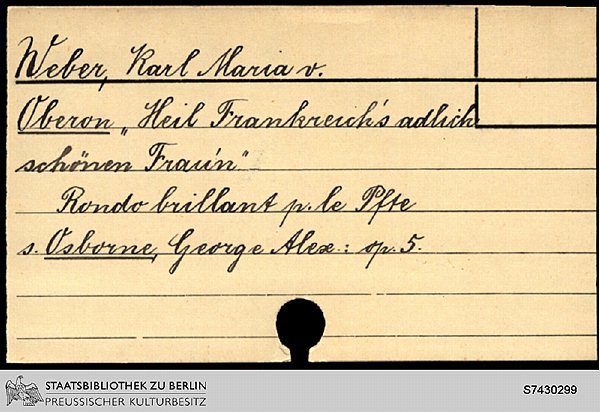 Weber, Karl Maria v.
Oberon „Heil Frankreich's adlich
schönen Fraun"
Rondo brillant p. le Pfte
s. Osborne, George Alex.: op. 5.
STAATSBIBLIOTHEK ZU BERLIN
PREUSSISCHER KULTURBESITZ
S7430299